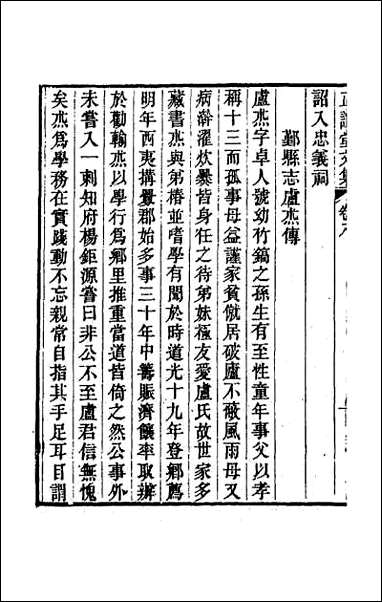 正誼堂文集 卷八
詔入忠義祠
鄞縣志盧杰傳
盧杰字卓人號幼竹鎬之孫生有至性童年事父以孝
稱十三而孤事母益謹家貧僦居破廬不蔽風雨母又
病濯炊爨皆身任之待弟妹極友愛盧氏故世家多
藏書杰與弟椿並嗜學有聞於時道光十九年登鄉薦
明年西夷搆釁郡始多事三十年中籌賑濟饟率取辦
於勸輸杰以學行爲鄉里推重當道皆倚之然公事外
未嘗入一刺知府楊鉅源嘗曰非公不至盧君信無愧
矣杰爲學務在實踐動不忘親常自指其手足耳目謂